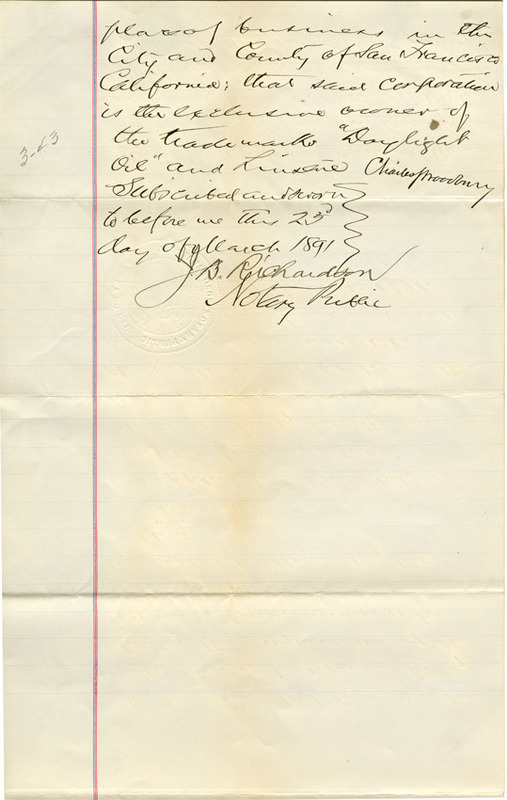 place of business in the
City and County of San Francisco
California; that said corporation
is the exclusive owner of
the trademarks "Daylight
Oil" and Charles Woodbury
Subscribed and sworn
to before me this 23d
day of March 1891
J. B. Richardson
Notary Public
3-23